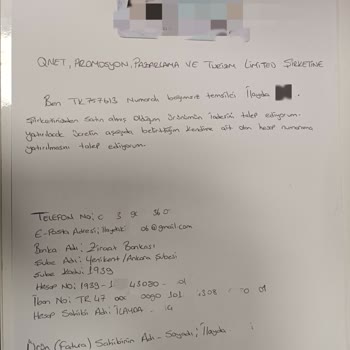 QNET, PROMOSYON, PAZARLAMA VE TURİZM LİMİTED ŞİRKETİNE
Ben TR 757613 Numaralı bağımsız temsilci İlayda
Şirketinizden satın almış olduğum ürünümün iadesini talep ediyorum.
Yatırılacak ücretin aşağıda belirttiğim kendime ait olan hesap numarama
yatırılmasını talep ediyorum.
TELEFON NO: 0 3 9 360
E-Posta Adresi: 06@gmail.com
Banka Adı: Ziraat Bankası
Şube Adı: Yenikent/Ankara Şubesi
Şube Kodu: 1939
Hesap No: 1939-1 45080- 01
İban No: TR 47 0090 101 308 00 01
Hesap Sahibi Adı: İLAYDA
Ürün (Fatura) Sahibinin Adı-Soyadı: İlayda